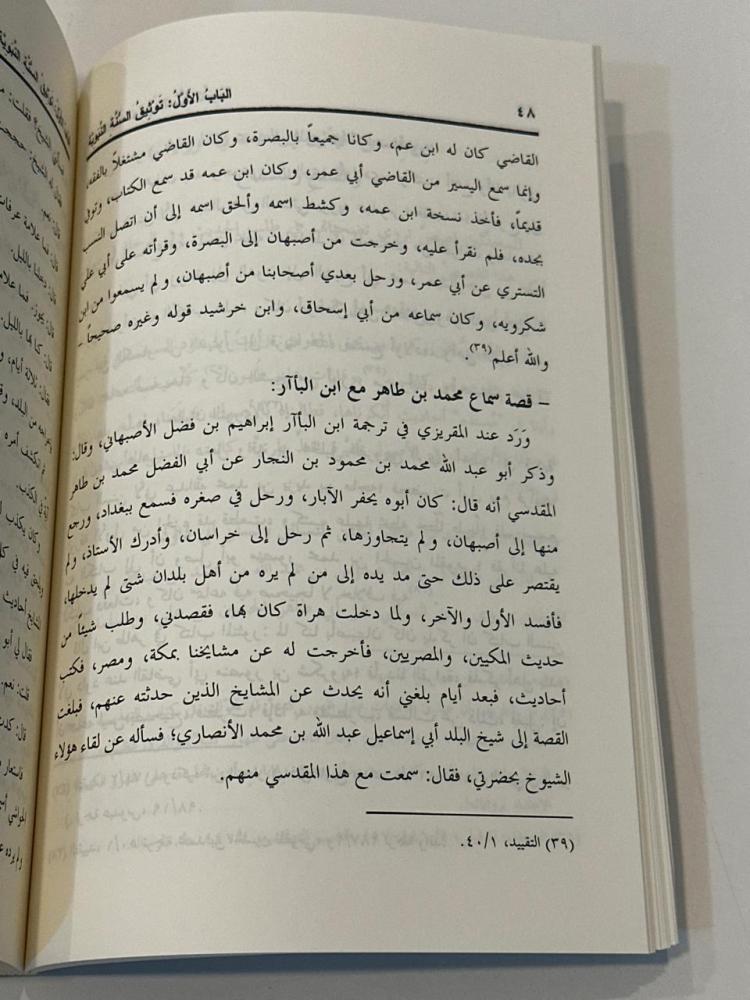 ٤٨
البَابُ الأوَّلُ: تَوْثِيقُ السُّنَّة النَّبَويَّة
القاضي كان له ابن عم، وكانا جميعاً بالبصرة، وكان القاضي مشتغلاً بالفقه،
وإنما سمع اليسير من القاضي أبي عمر، وكان ابن عمه قد سمع الكتاب، وتوفي
قديماً، فأخذ نسخة ابن عمه، وكشط اسمه وألحق اسمه إلى أن اتصل النسب
بجده، فلم نقرأ عليه، وخرجت من أصبهان إلى البصرة، وقرأته على أبي علي
التستري عن أبي عمر، ورحل بعدي أصحابنا من أصبهان، ولم يسمعوا من ابن
شكرويه، وكان سماعه من أبي إسحاق، وابن خرشيد قوله وغيره صحيحاً -
والله أعلم(٣٩).
- قصة سماع محمد بن طاهر مع ابن البأآر:
وَرَد عند المقريزي في ترجمة ابن البأآر إبراهيم بن فضل الأصبهاني، وقال:
وذكر أبو عبد الله محمد بن محمود بن النجار عن أبي الفضل محمد بن طاهر
المقدسي أنه قال: كان أبوه يحفر الآبار، ورحل في صغره فسمع ببغداد، ورجع
منها إلى أصبهان، ولم يتجاوزها، ثم رحل إلى خراسان، وأدرك الأستاذ، ولم
يقتصر على ذلك حتى مد يده إلى من لم يره من أهل بلدان شتى لم يدخلها،
فأفسد الأول والآخر، ولما دخلت هراة كان بها، فقصدني، وطلب شيئاً من
حديث المكيين، والمصريين، فأخرجت له عن مشايخنا بمكة، ومصر، فكتب
أحاديث، فبعد أيام بلغني أنه يحدث عن المشايخ الذين حدثته عنهم، فبلغت
القصة إلى شيخ البلد أبي إسماعيل عبد الله بن محمد الأنصاري؛ فسأله عن لقاء هؤلاء
الشيوخ بحضرتي، فقال: سمعت مع هذا المقدسي منهم.
(٣٩) التقييد، ٤٠/١.